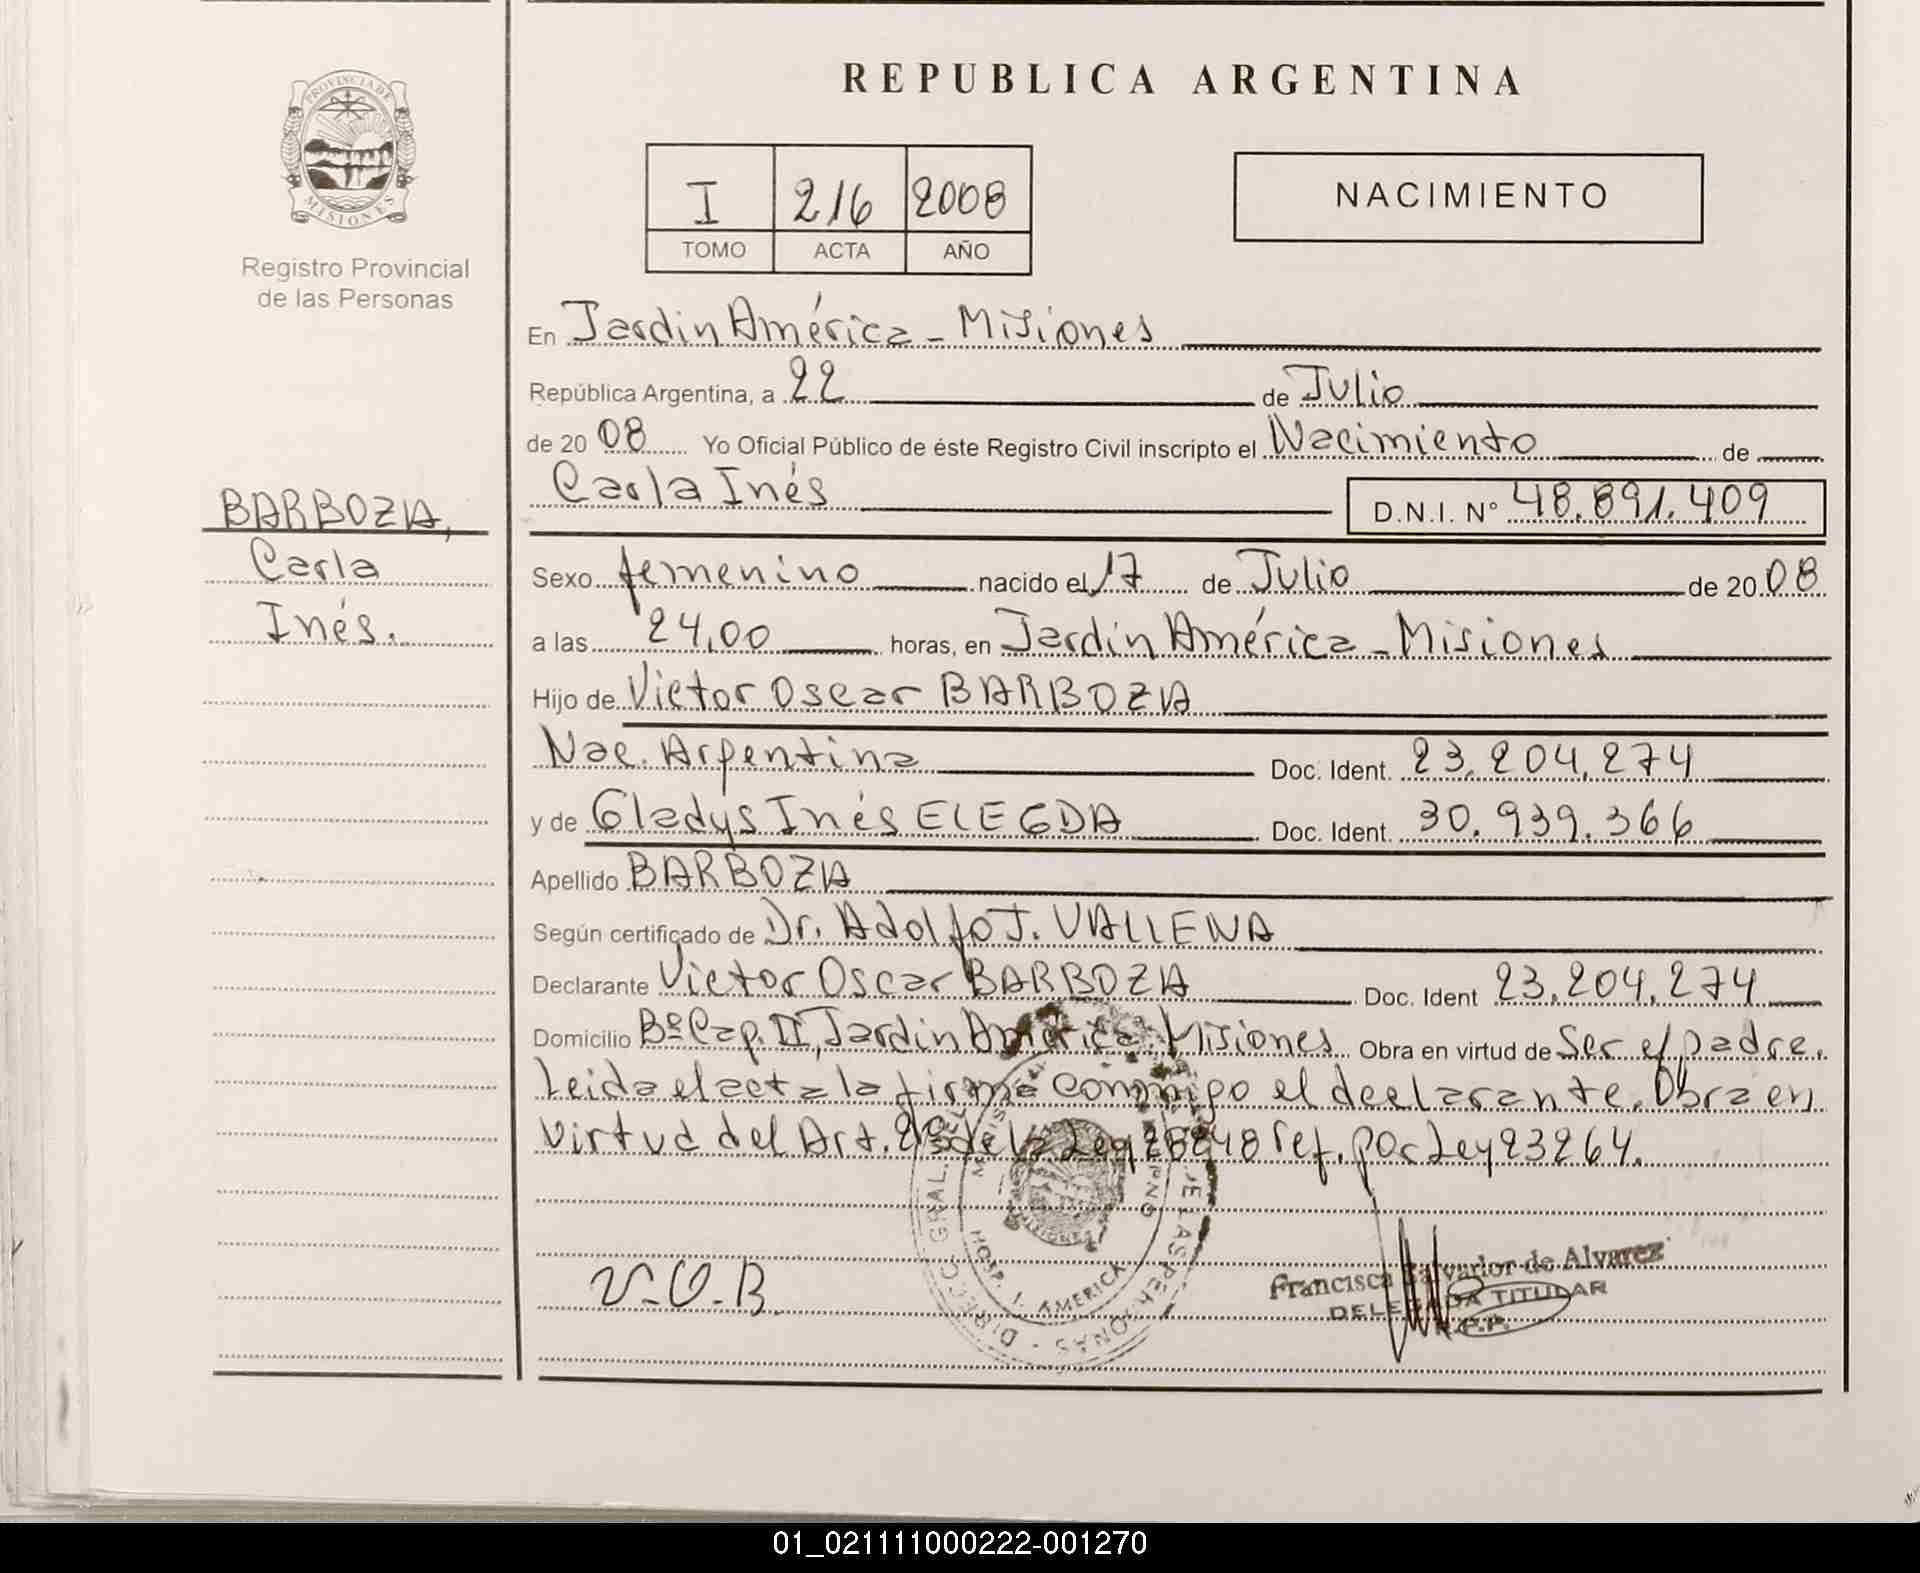 PROVINCIA DE
MISIONES
Registro Provincial
de las Personas
BARBOZA,
Carla
Inés.
REPUBLICA ARGENTINA
I 216 2008
TOMO ACTA AÑO
NACIMIENTO
En Jardin América - Misiones
República Argentina, a 22 de Julio
de 20 08 Yo Oficial Público de éste Registro Civil inscripto el Nacimiento de
Carla Inés D.N.I. N° 48.891.409
Sexo femenino nacido el 17 de Julio de 20 08
a las 24,00 horas, en Jardin América - Misiones
Hijo de Victor Oscar BARBOZA
Nac. Argentina Doc. Ident. 23.204.274
y de Gladys Inés Doc. Ident. 30.939.366
Apellido BARBOZA
Según certificado de Dr. Adolfo J. VALLENA
Declarante Victor Oscar BARBOZA Doc. Ident 23.204.274
Domicilio Bº Cap. II, Jardin América. Misiones Obra en virtud de Ser el padre.
Leida el acta la firma conmigo el declarante. Obra en
virtud del Art. de la Ley ref. por Ley 23264.
V.O.B.
DIRECC. GRAL. DE LAS PERSONAS
HOSP. J. AMERICA
MISIONES
Francisca Salvador de Alvarez
DELEGADA TITULAR
R.P.P.
01_021111000222-001270